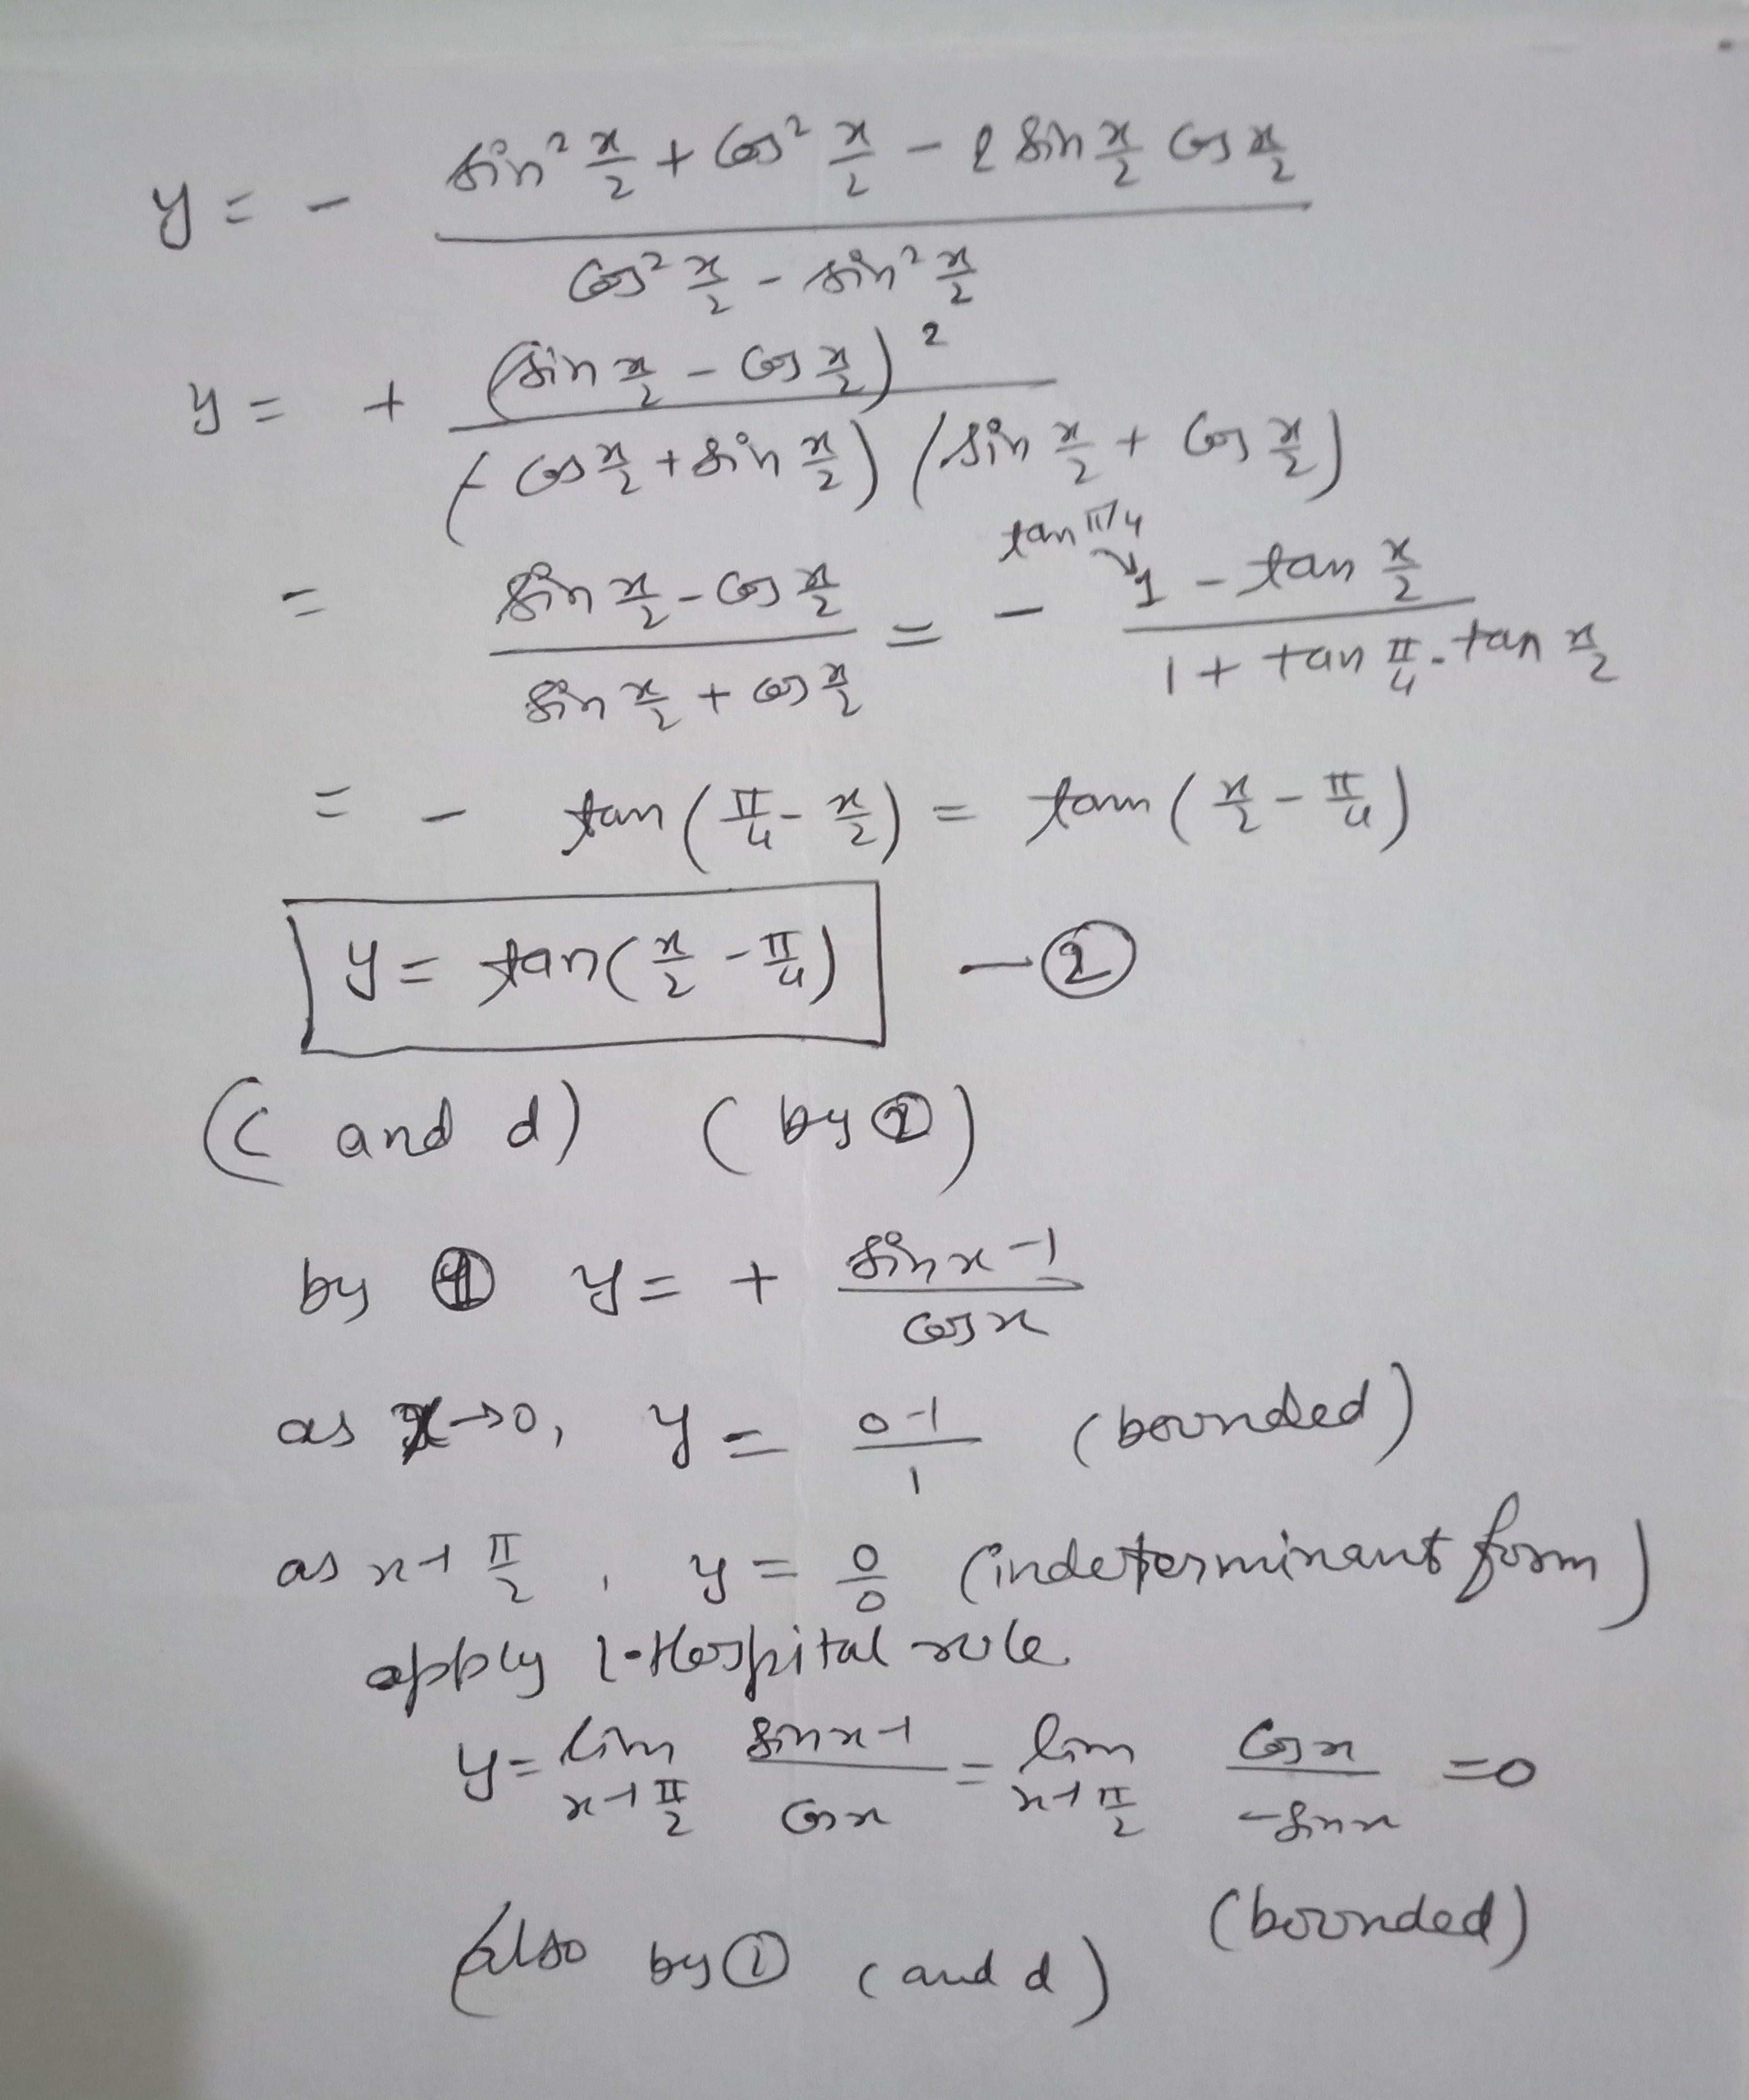 y = - (sin² x/2 + cos² x/2 - 2 sin x/2 cos x/2) / (cos² x/2 - sin² x/2)
y = + (sin x/2 - cos x/2)² / (-cos x/2 + sin x/2) (sin x/2 + cos x/2)
tan π/4 ↘
= (sin x/2 - cos x/2) / (sin x/2 + cos x/2) = - (1 - tan x/2) / (1 + tan π/4 . tan x/2)
= - tan (π/4 - x/2) = tan (x/2 - π/4)
y = tan(x/2 - π/4) — ②
(c and d) (by ②)
by ① y = + (sin x - 1) / cos x
as x→0, y = (0-1)/1 (bounded)
as x→π/2, y = 0/0 (indeterminant form)
apply l-Hospital rule
y = lim x→π/2 (sin x - 1)/cos x = lim x→π/2 cos x/(-sin x) = 0
(bounded)
also by ① (and d)